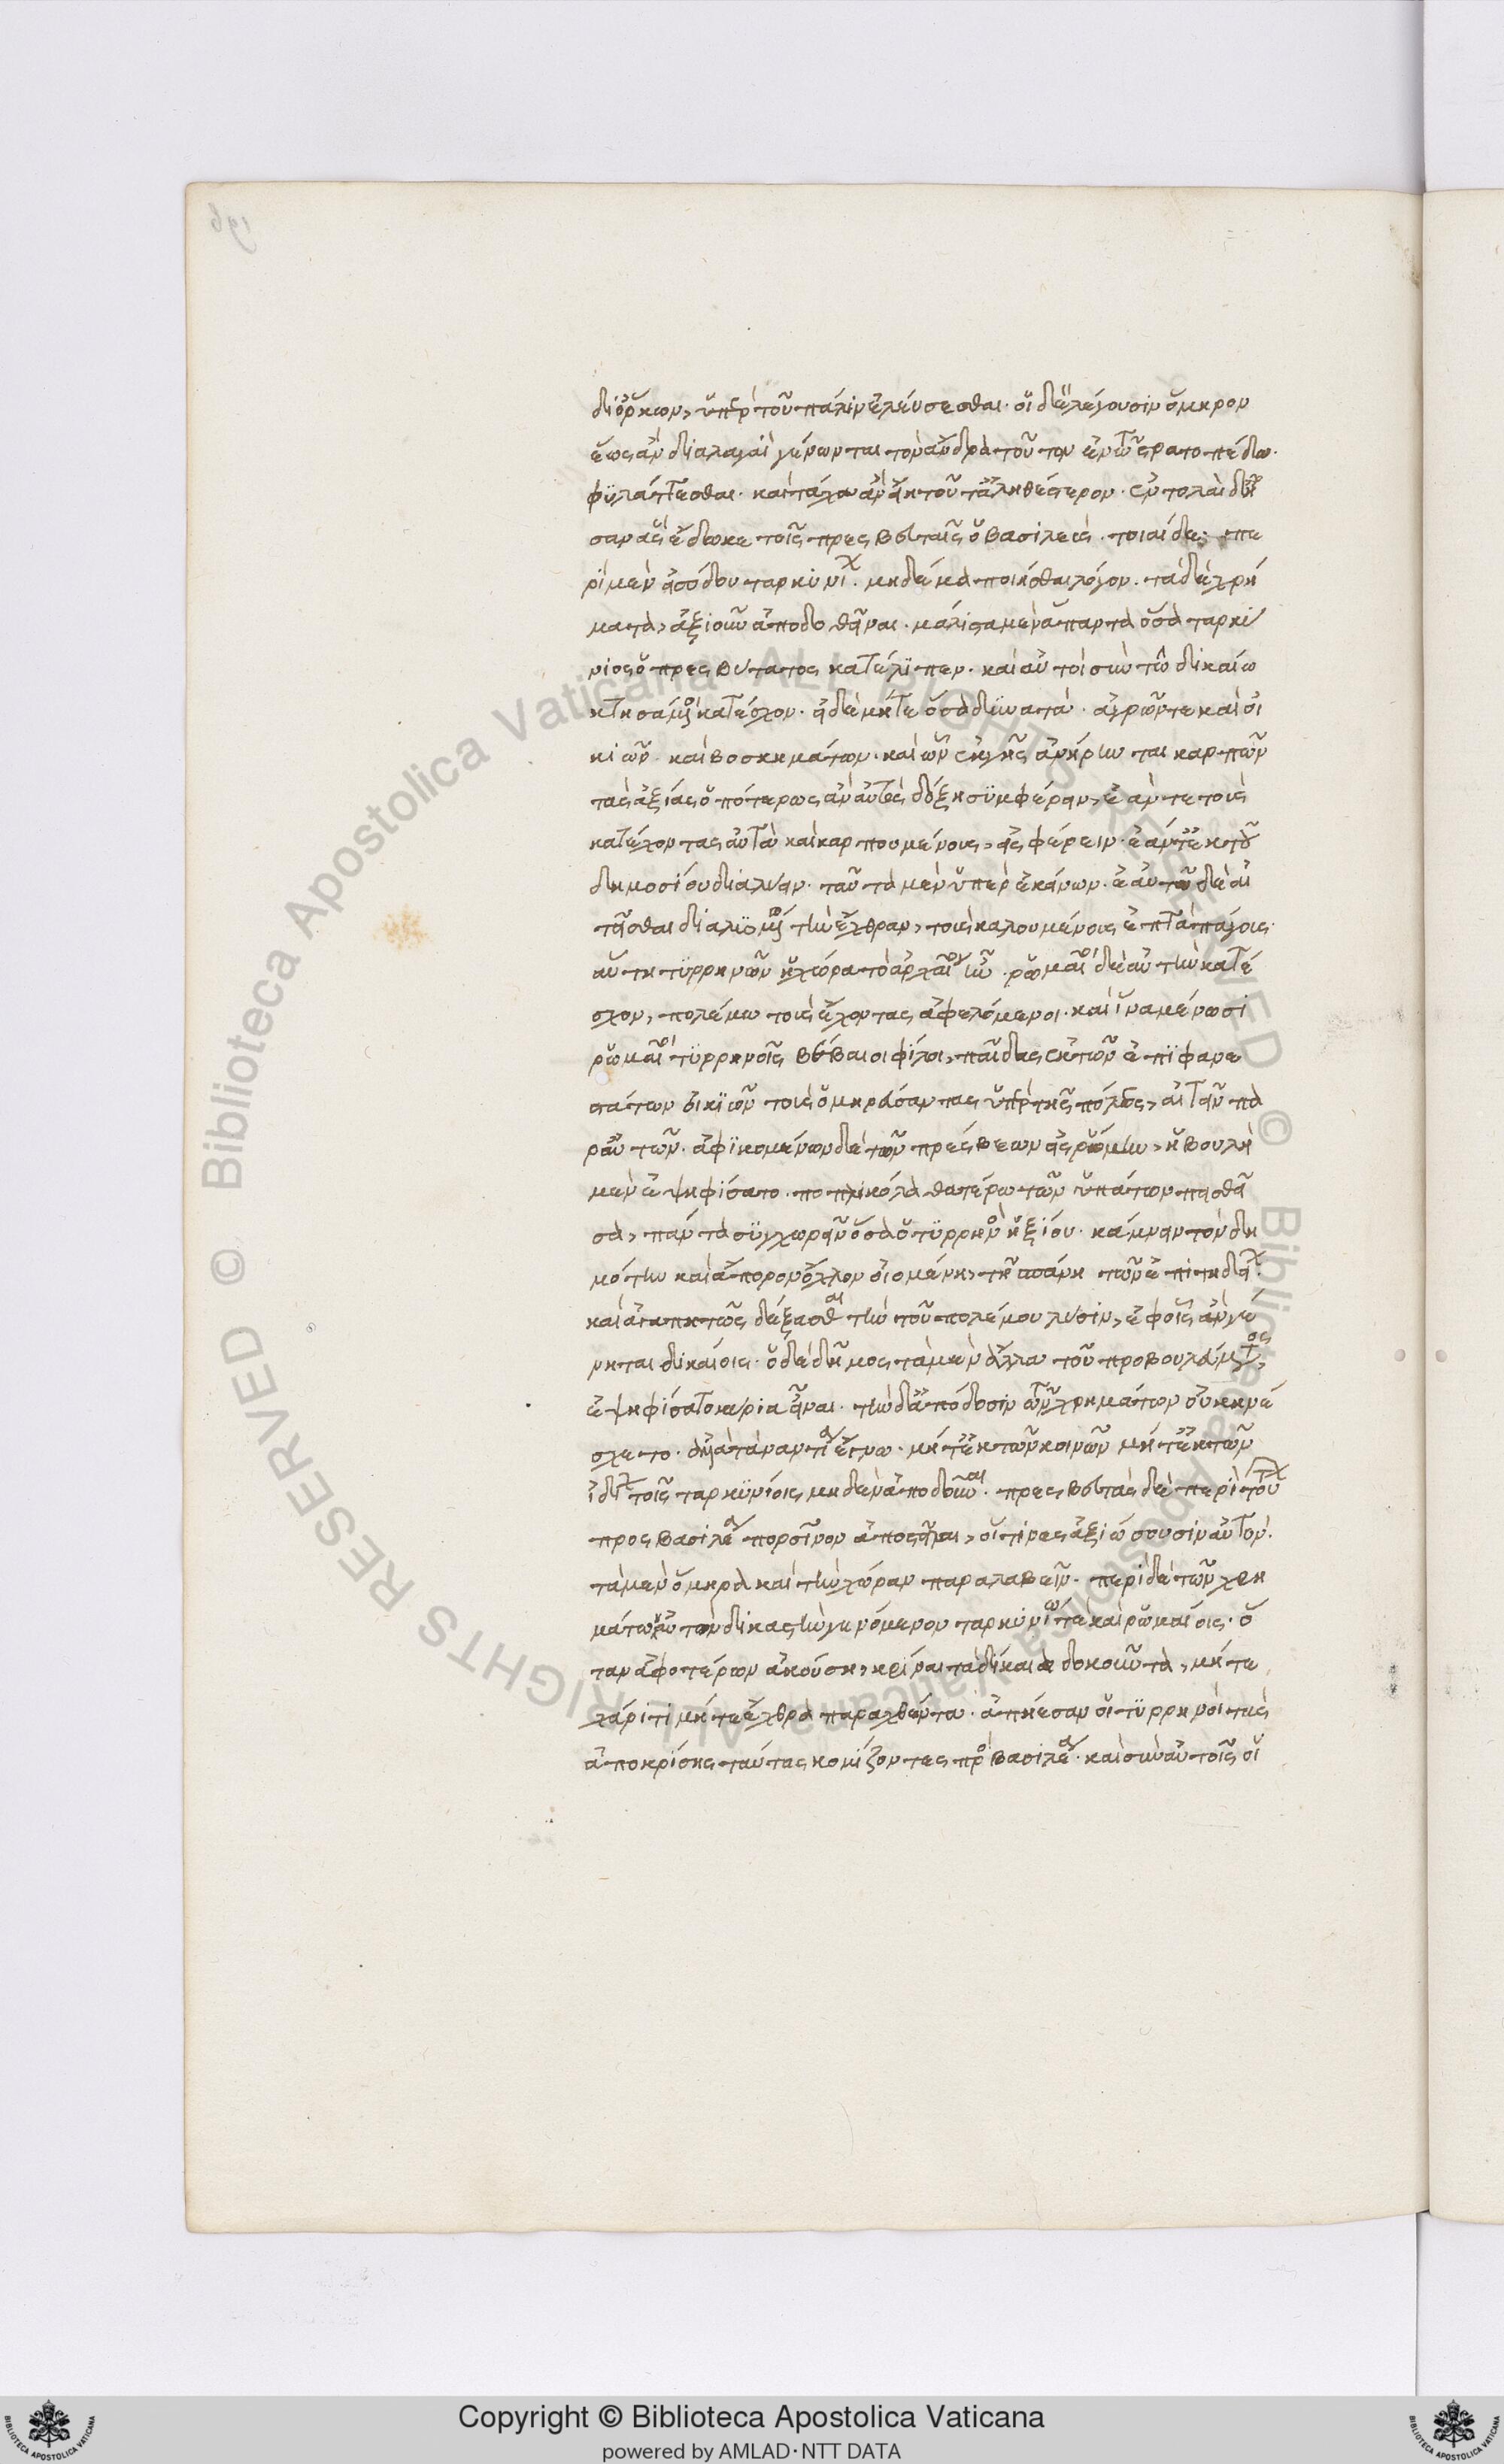 δι' ὅρκων, ὑπὲρ τοῦ πάλιν ἐλεύσεσθαι· οἱ δὲ λέγουσιν ὅμηρον
ἕως ἂν διαλαγαὶ γένωνται τὸν ἄνδρα τοῦτον ἐν τῶ στρατοπέδω
φυλάττεσθαι· καὶ τάχα ἂν εἴη τοῦτ' ἀληθέστερον· ἐντολαὶ δ' ἦ
σαν ἃς ἔδωκε τοῖς πρεσβευταῖς ὁ βασιλεὺς· τοιαίδε· πε
ρὶ μὲν εἰσόδου ταρκυνί. μηδένα ποιεῖσθαι λόγον· τὰ δὲ χρή
ματα, ἀξιοῦν ἀποδοθῆναι· μάλιστα μὲν ἅπαντα ὅσα ταρκύ
νιος ὁ πρεσβύτατος κατέλιπεν· καὶ αὐτοὶ σὺν τῶ δικαίω
κτησάμενοι κατέσχον· εἰ δὲ μή γε ὅσα δυνατὰ· ἀγρῶν τε καὶ οἰ
κιῶν· καὶ βοσκημάτων· καὶ ὧν ἐκ γῆς ἀνήρηνται καρπῶν
τὰς ἀξίας ὁποτέρως ἂν αὐτοῖς δόξη συμφέρειν, ἐάν τε τοὺς
κατέχοντας αὐτὰ καὶ καρπουμένους, εἰσφέρειν· ἐάν τε ἐκ τοῦ
δημοσίου διαλύειν· ταῦτα μὲν ὑπὲρ ἐκείνων· ἑαυτῶ δὲ αἰ
τεῖσθαι διαλυόμενος τὴν ἔχθραν, τοὺς καλουμένους ἑπτὰ πάγους·
αὕτη τυρρηνῶν ἡ χώρα τὸ ἀρχαῖον ἦν· ῥωμαῖοι δὲ αὐτὴν κατέ
σχον, πολέμω τοὺς ἔχοντας ἀφελόμενοι· καὶ ἵνα μένωσι
ῥωμαῖοι τυρρηνοῖς βέβαιοι φίλοι, παῖδας ἐκ τῶν ἐπιφανε
στάτων οἰκιῶν τοὺς ὁμηρεύσοντας ὑπὲρ τῆς πόλεως, αἰτεῖν πα
ρ' αὐτῶν· ἀφικομένων δὲ τῶν πρέσβεων εἰς ῥώμην, ἡ βουλὴ
μὲν ἐψηφίσατο· ποπλικόλα θατέρω τῶν ὑπάτων πεισθεῖ
σα, πάντα συγχωρεῖν ὅσα ὁ τυρρηνὸς ἠξίου· κάμνειν τὸν δη
μότην καὶ ἄπορον ὄχλον οἰομένη, τῆ σπάνει τῶν ἐπιτηδείων·
καὶ ἀγαπητῶς δέξασθαι τὴν τοῦ πολέμου λύσιν, ἐφ' οἷς ἂν γέ
νηται δικαίοις· ὁ δὲ δῆμος τὰ μὲν ἄλλα τοῦ προβουλεύματος,
ἐψηφίσατο κύρια εἶναι· τὴν δ' ἀπόδοσιν τῶν χρημάτων οὐκ ἠνέ
σχετο· ἀλλὰ τἀναντία ἔγνω· μήτ' ἐκ τῶν κοινῶν μήτ' ἐκ τῶν
ἰδίων τοῖς ταρκυνίοις μηδὲν ἀποδοῦναι· πρεσβευτὰς δὲ περὶ τούτων
πρὸς βασιλέα πορσῖνον ἀποστεῖλαι, οἵτινες ἀξιώσουσιν αὐτὸν·
τὰ μὲν ὅμηρα καὶ τὴν χώραν παραλαβεῖν· περὶ δὲ τῶν χρη
μάτων αὐτὸν δικαστὴν γενόμενον ταρκυνίω τε καὶ ῥωμαίοις· ὅ
ταν ἀμφοτέρων ἀκούση, κρῖναι τὰ δίκαια δοκοῦντα, μήτε
χάριτι μήτε ἔχθρα παραχθέντα· ἀπήεσαν οἱ τυρρηνοὶ τὰς
ἀποκρίσεις ταύτας κομίζοντες πρὸς βασιλέα· καὶ σὺν αὐτοῖς οἱ
Copyright © Biblioteca Apostolica Vaticana
powered by AMLAD·NTT DATA